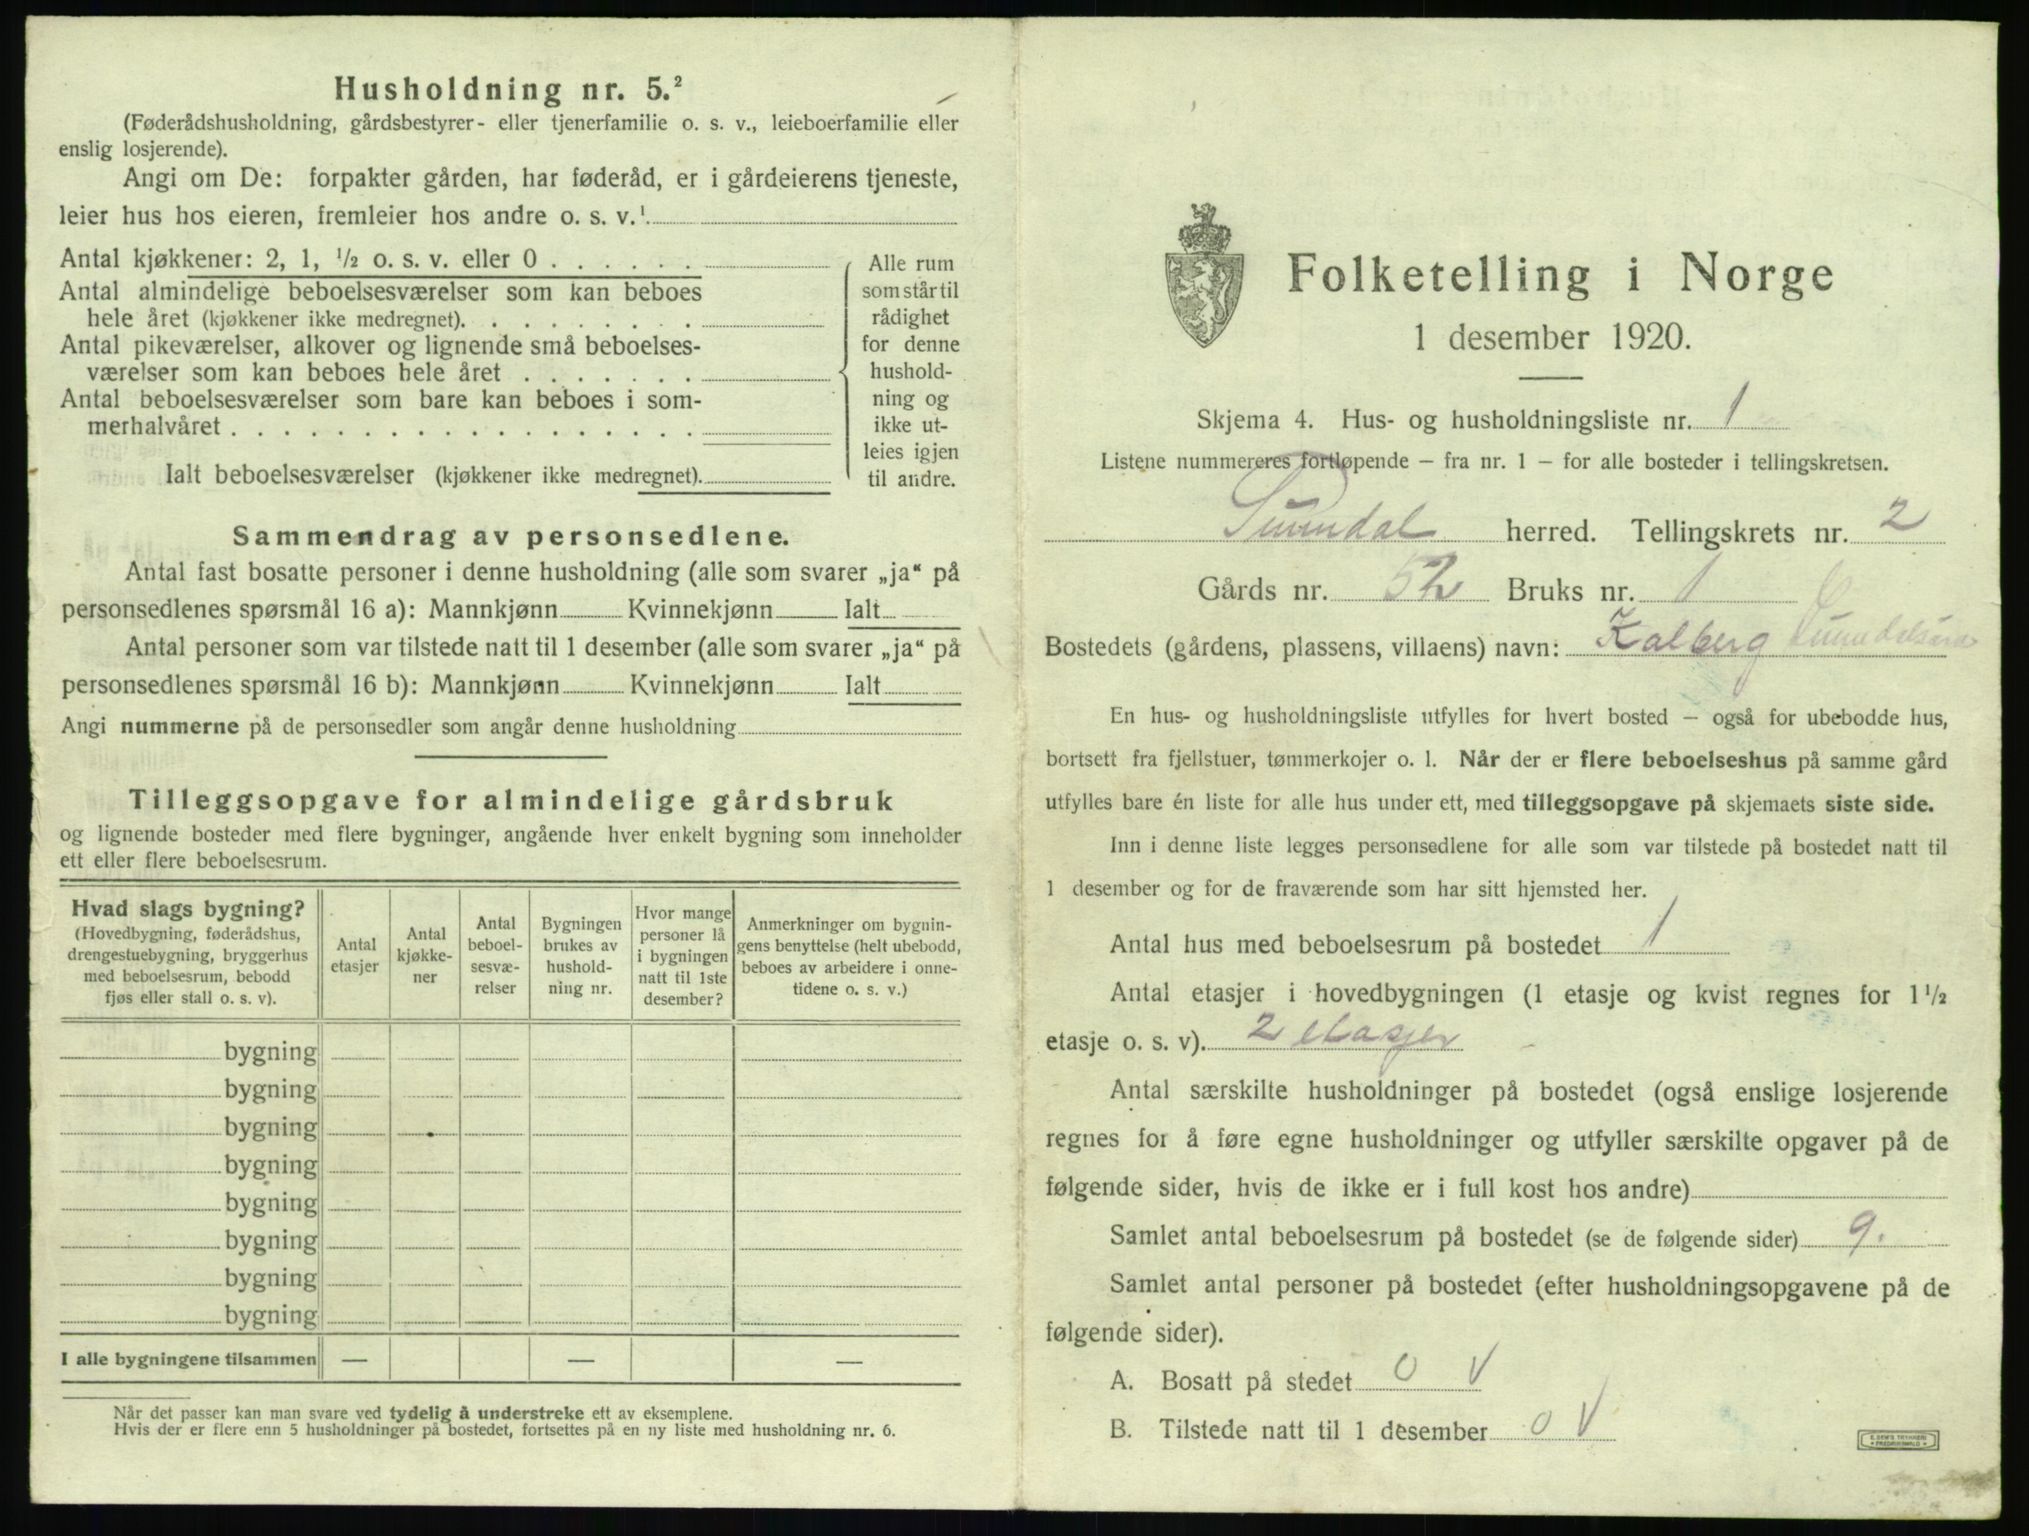 Husholdning nr. 5.²
(Føderådshusholdning, gårdsbestyrer- eller tjenerfamilie o. s. v., leieboerfamilie eller
enslig losjerende).
Angi om De: forpakter gården, har føderåd, er i gårdeierens tjeneste,
leier hus hos eieren, fremleier hos andre o. s. v.¹
Antal kjøkkener: 2, 1, ½ o. s. v. eller 0 . . . . . .
Antal almindelige beboelsesværelser som kan beboes
hele året (kjøkkener ikke medregnet). . . . . . . . .
Antal pikeværelser, alkover og lignende små beboelses-
værelser som kan beboes hele året . . . . . . .
Antal beboelsesværelser som bare kan beboes i som-
merhalvåret . . . . . . . . . . . . . . . . . .
Ialt beboelsesværelser (kjøkkener ikke medregnet).
Alle rum
som står til
rådighet
for denne
hushold-
ning og
ikke ut-
leies igjen
til andre.
Sammendrag av personsedlene.
Antal fast bosatte personer i denne husholdning (alle som svarer „ja“ på
personsedlenes spørsmål 16 a): Mannkjønn Kvinnekjønn Ialt
Antal personer som var tilstede natt til 1 desember (alle som svarer „ja“ på
personsedlenes spørsmål 16 b): Mannkjønn Kvinnekjønn Ialt
Angi nummerne på de personsedler som angår denne husholdning
Tilleggsopgave for almindelige gårdsbruk
og lignende bosteder med flere bygninger, angående hver enkelt bygning som inneholder
ett eller flere beboelsesrum.
Hvad slags bygning?
(Hovedbygning, føderådshus,
drengestuebygning, bryggerhus
med beboelsesrum, bebodd
fjøs eller stall o. s. v).
Antal
etasjer
Antal
kjøkke-
ner
Antal
beboel-
sesvæ-
relser
Bygningen
brukes av
hushold-
ning nr.
Hvor mange
personer lå
i bygningen
natt til 1ste
desember?
Anmerkninger om bygnin-
gens benyttelse (helt ubebodd,
beboes av arbeidere i onne-
tidene o. s. v.)
bygning
bygning
bygning
bygning
bygning
bygning
bygning
bygning
I alle bygningene tilsammen — — —
Når det passer kan man svare ved tydelig å understreke ett av eksemplene.
Hvis der er flere enn 5 husholdninger på bostedet, fortsettes på en ny liste med husholdning nr. 6.
Folketelling i Norge
1 desember 1920.
Skjema 4. Hus- og husholdningsliste nr. 1
Listene nummereres fortløpende — fra nr. 1 — for alle bosteder i tellingskretsen.
Sunndal herred. Tellingskrets nr. 2
Gårds nr. 52 Bruks nr. 1
Bostedets (gårdens, plassens, villaens) navn: Kalberg Sunndalsøra
En hus- og husholdningsliste utfylles for hvert bosted — også for ubebodde hus,
bortsett fra fjellstuer, tømmerkojer o. l. Når der er flere beboelseshus på samme gård
utfylles bare én liste for alle hus under ett, med tilleggsopgave på skjemaets siste side.
Inn i denne liste legges personsedlene for alle som var tilstede på bostedet natt til
1 desember og for de fraværende som har sitt hjemsted her.
Antal hus med beboelsesrum på bostedet 1
Antal etasjer i hovedbygningen (1 etasje og kvist regnes for 1½
etasje o. s. v). 2 etasjer
Antal særskilte husholdninger på bostedet (også enslige losjerende
regnes for å føre egne husholdninger og utfyller særskilte opgaver på de
følgende sider, hvis de ikke er i full kost hos andre)
Samlet antal beboelsesrum på bostedet (se de følgende sider) 9.
Samlet antal personer på bostedet (efter husholdningsopgavene på de
følgende sider).
A. Bosatt på stedet 0 V
B. Tilstede natt til 1 desember 0 V
E. SEM'S TRYKKERI
• FREDRIKSHALD •